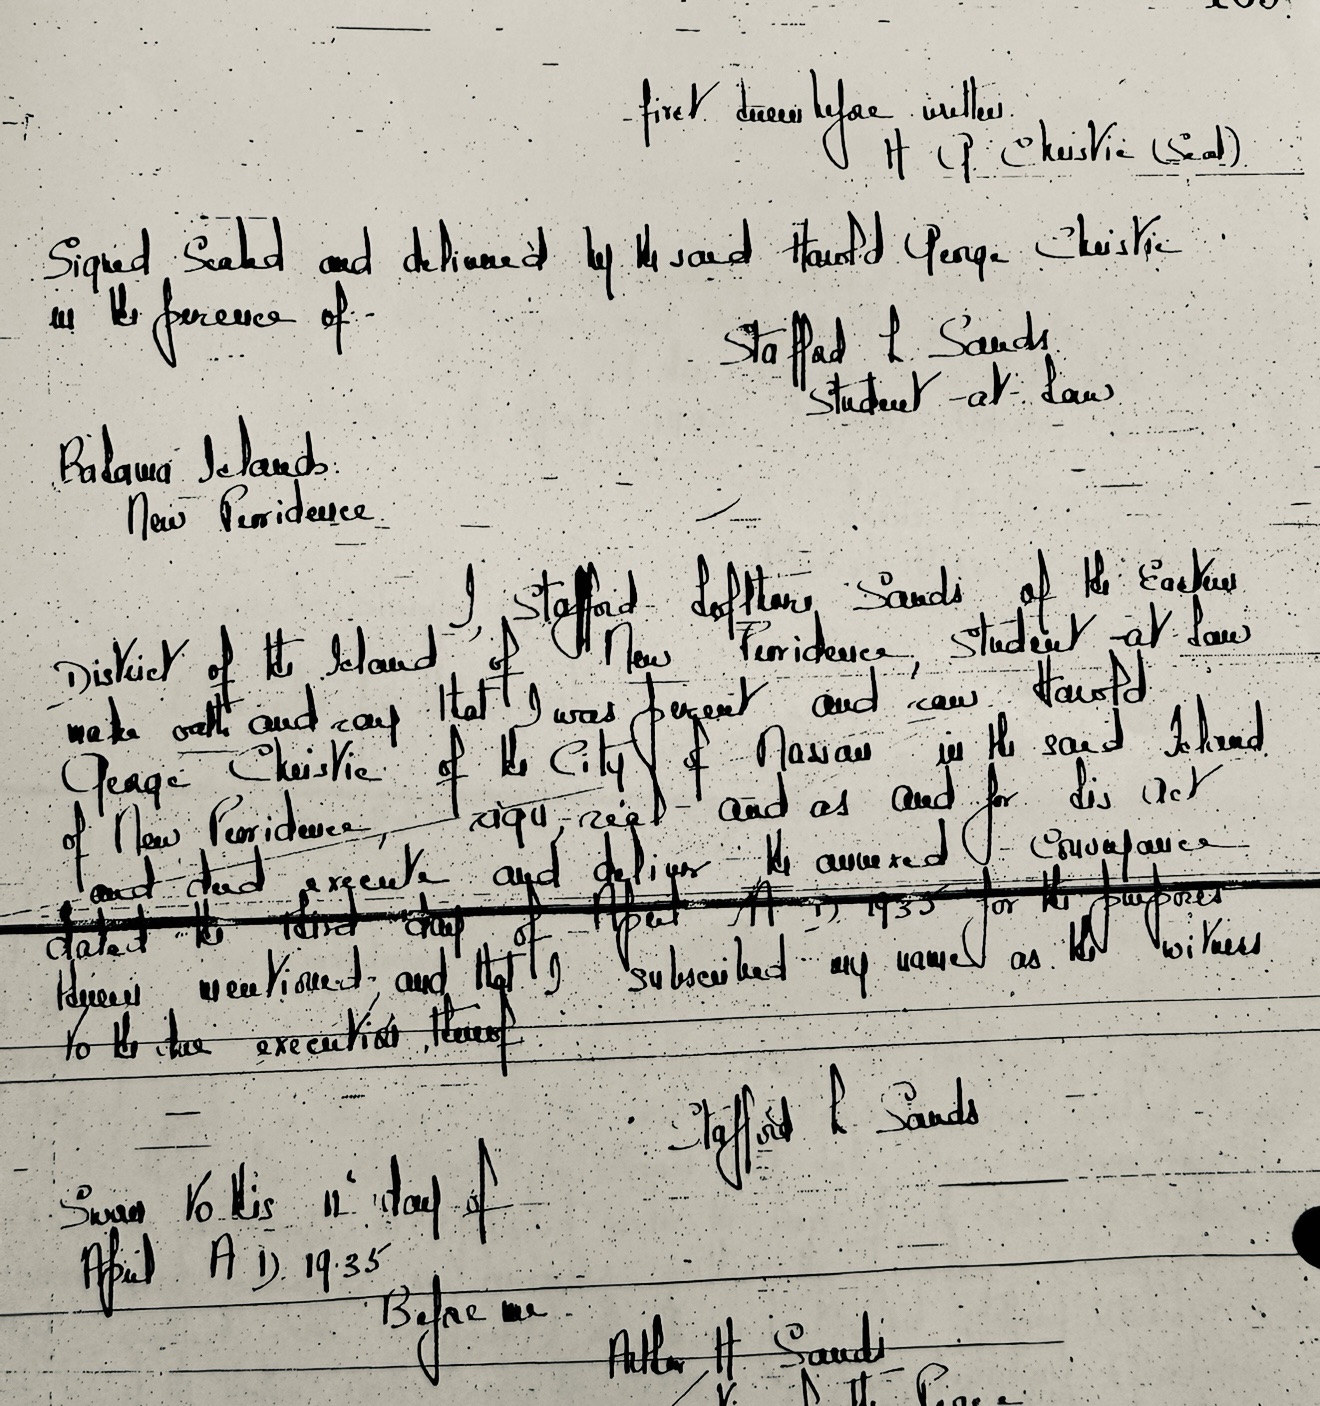 first herein before written.
H G Christie (Seal)
Signed Sealed and delivered by the said Harold George Christie
in the presence of:-
Stafford L Sands
Student-at-Law
Bahama Islands.
New Providence
I, Stafford Lofthouse Sands of the Eastern
District of the Island of New Providence, Student-at-Law
make oath and say that I was present and saw Harold
George Christie of the City of Nassau in the said Island
of New Providence, sign, seal and as and for his Act
and deed execute and deliver the annexed Conveyance
dated the third day of April A D 1935 for the purposes
therein mentioned; and that I subscribed my name as the witness
to the due execution thereof
Stafford L Sands
Sworn to this 11th day of
April A D. 1935
Before me
Arthur H Sands
of the Peace